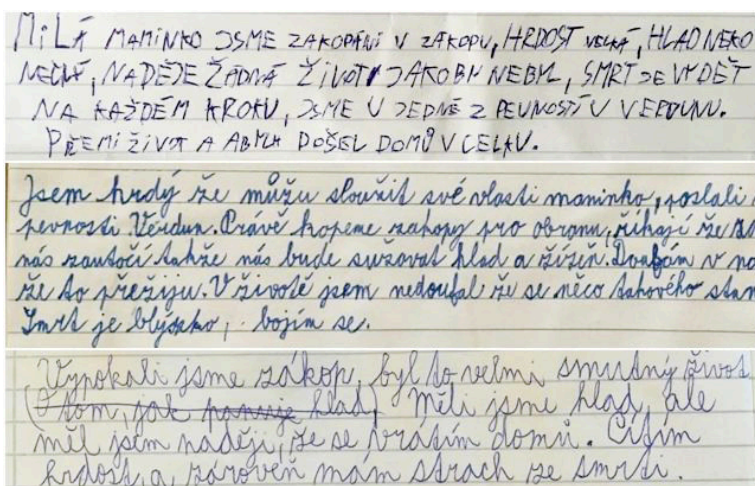 MILÁ MAMINKO JSME ZAKOPÁNI V ZÁKOPU, HRDOST VELKÁ, HLAD NEKO
NEČNÝ, NADĚJE ŽÁDNÁ ŽIVOT JAKOBY NEBYL, SMRT JE VYDĚT
NA KAŽDÉM KROKU, JSME U JEDNÉ Z PEVNOSTÍ U VERDUNU.
PŘEMI ŽIVOT A ABYCH DOŠEL DOMŮ V CELKU.
Jsem hrdý že můžu sloužit své vlasti maminko, poslali
pevnosti Verdun. Právě kopeme zakopy pro obranu, říkají že
nás zautočí takže nás bude sužovat hlad a žízeň. Doufám v
že to přežiju. V životě jsem nedoufal že se něco takového
Smrt je blýzko, bojím se.
Vypokali jsme zákop, byl to velmi smutný život
(O tom, jak panuje hlad) Měli jsme hlad, ale
měl jsem naději, že se vrátím domů. Cítím
hrdost, a zároveň mám strach ze smrti.